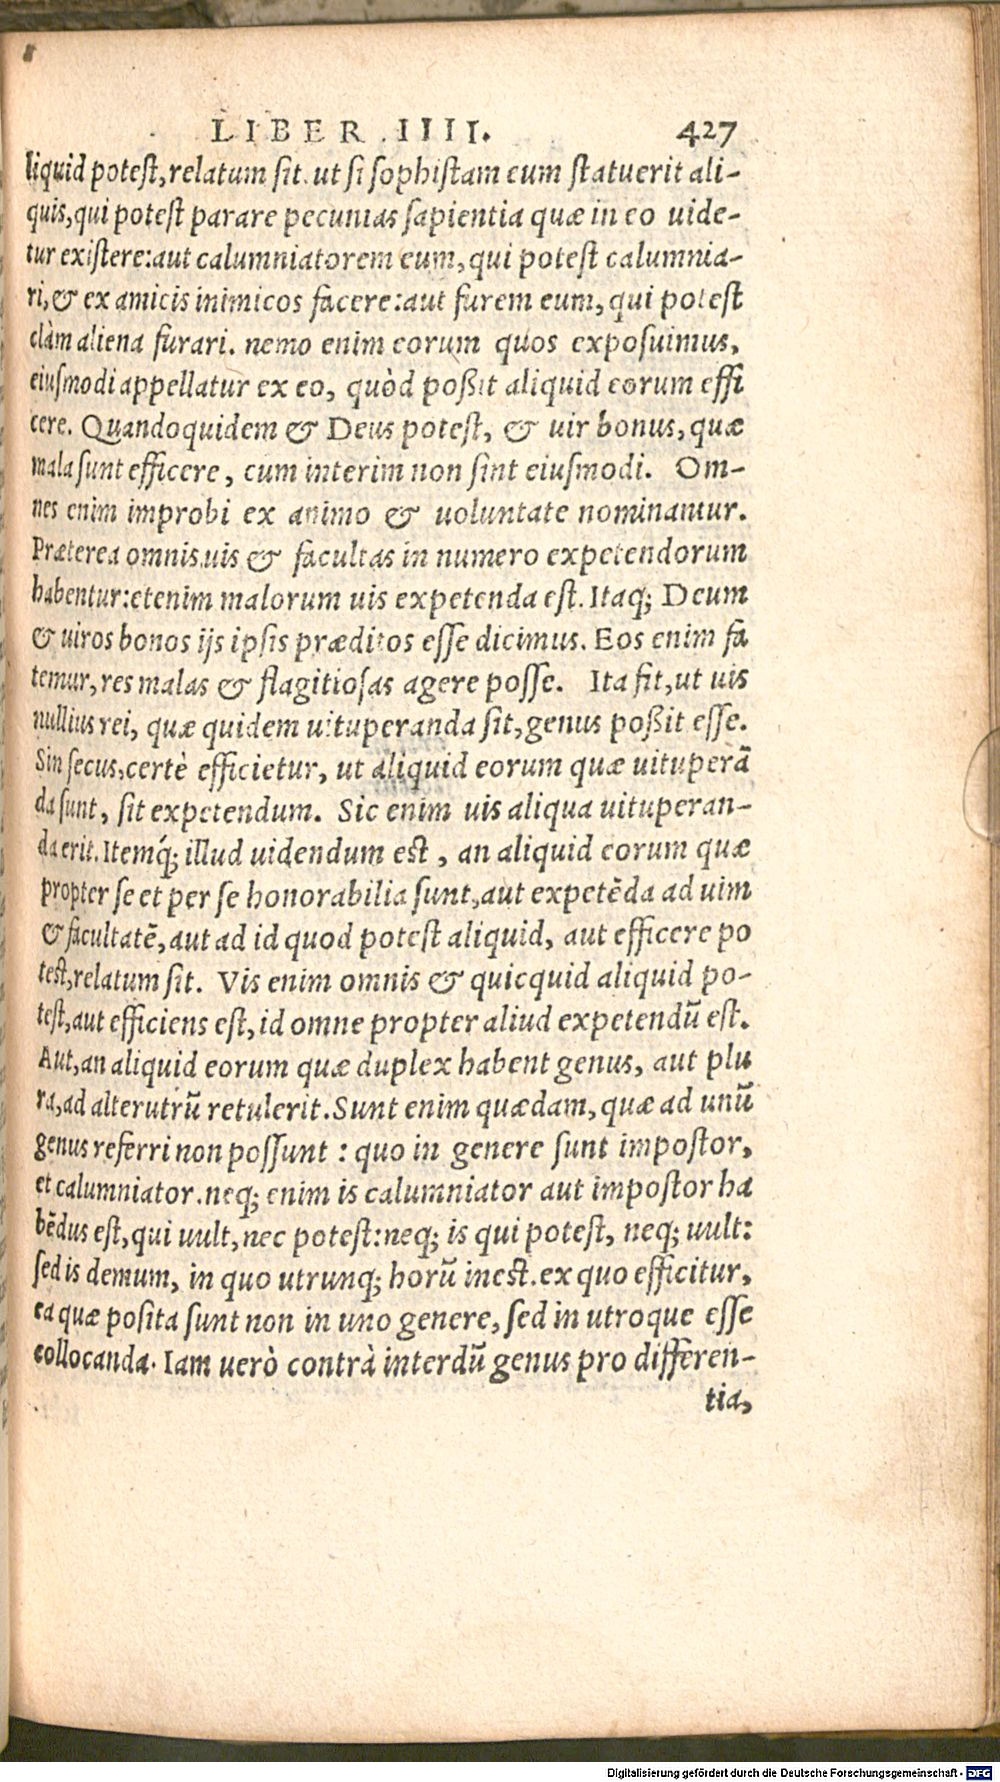 LIBER IIII. 427
liquid potest, relatum sit. ut si sophistam eum statuerit ali-
quis, qui potest parare pecunias sapientia quæ in eo uide-
tur existere: aut calumniatorem eum, qui potest calumnia-
ri, & ex amicis inimicos facere: aut furem eum, qui potest
clàm aliena furari. nemo enim eorum quos exposuimus,
eiusmodi appellatur ex eo, quòd poßit aliquid eorum effi
cere. Quandoquidem & Deus potest, & uir bonus, quæ
mala sunt efficere, cum interim non sint eiusmodi. Om-
nes enim improbi ex animo & uoluntate nominantur.
Præterea omnis uis & facultas in numero expetendorum
habentur: etenim malorum uis expetenda est. Itaq; Deum
& uiros bonos ijs ipsis præditos esse dicimus. Eos enim fa
temur, res malas & flagitiosas agere posse. Ita fit, ut uis
nullius rei, quæ quidem uituperanda sit, genus poßit esse.
Sin secus, certè efficietur, ut aliquid eorum quæ uituperā
da sunt, sit expetendum. Sic enim uis aliqua uituperan-
da erit. Itemq́; illud uidendum est, an aliquid eorum quæ
propter se et per se honorabilia sunt, aut expetēda ad uim
& facultatē, aut ad id quod potest aliquid, aut efficere po
test, relatum sit. Vis enim omnis & quicquid aliquid po-
test, aut efficiens est, id omne propter aliud expetendū est.
Aut, an aliquid eorum quæ duplex habent genus, aut plu
ra, ad alterutrū retulerit. Sunt enim quædam, quæ ad unū
genus referri non possunt: quo in genere sunt impostor,
et calumniator. neq; enim is calumniator aut impostor ha
bēdus est, qui uult, nec potest: neq; is qui potest, neq; uult:
sed is demum, in quo utrunq; horū inest. ex quo efficitur,
ea quæ posita sunt non in uno genere, sed in utroque esse
collocanda. Iam uerò contrà interdū genus pro differen-
tia,
Digitalisierung gefördert durch die Deutsche Forschungsgemeinschaft - DFG